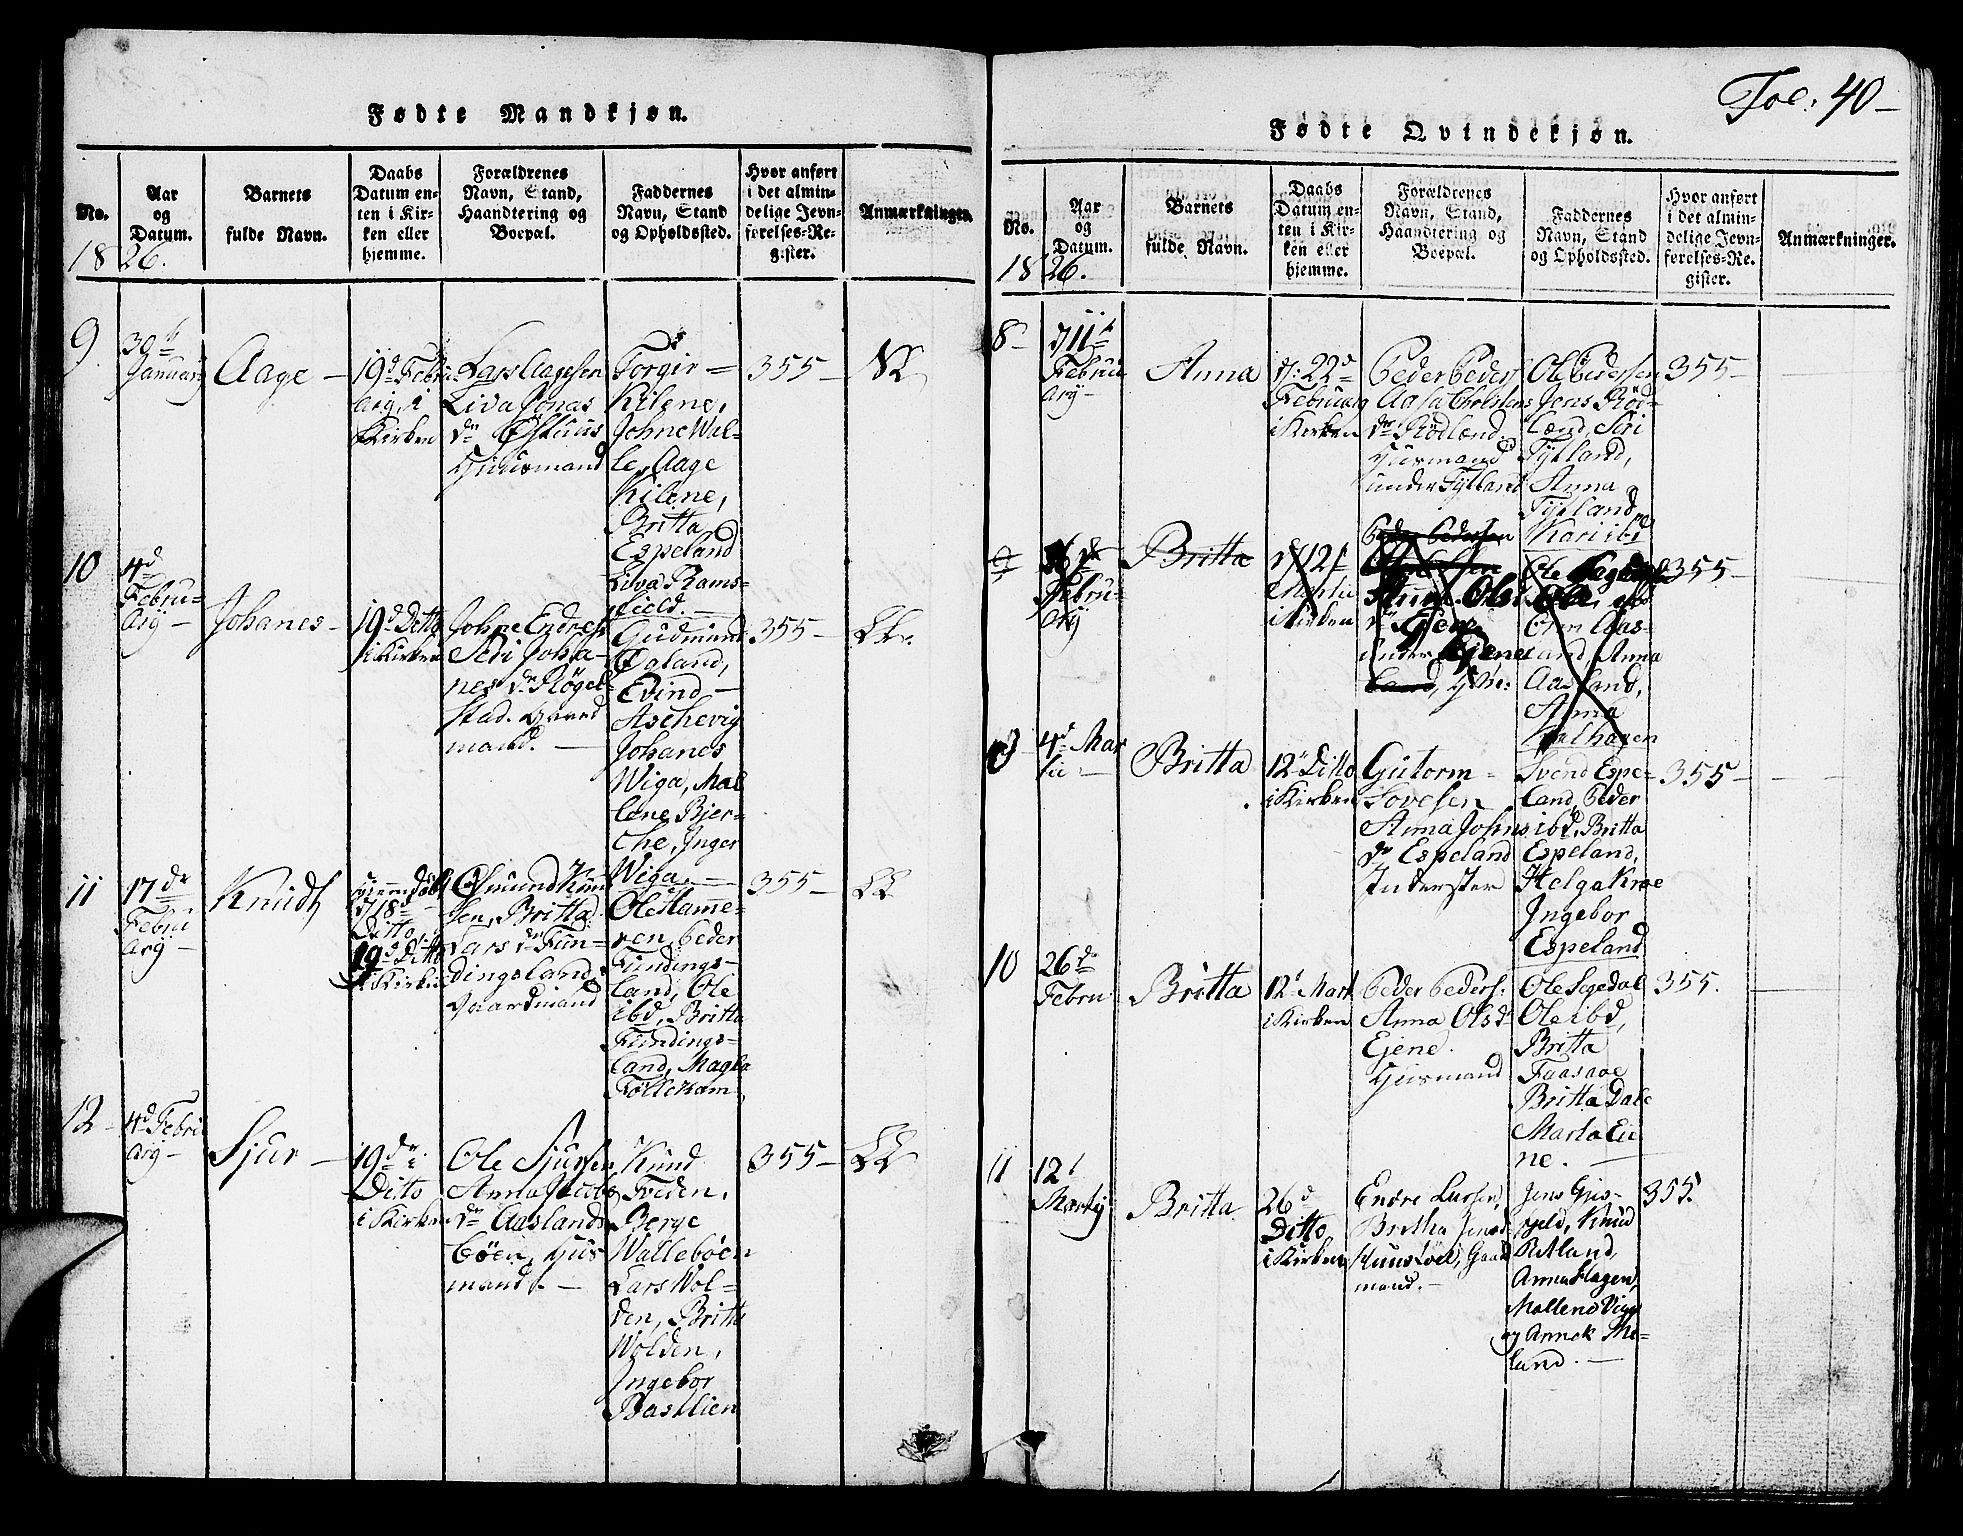 Fødte Mandkjøn.
No.
Aar
og
Datum.
Barnets
fulde Navn.
Daabs
Datum en-
ten i Kir-
ken eller
hjemme.
Forældrenes
Navn, Stand,
Haandtering og
Boepæl.
Faddernes
Navn, Stand
og Opholdssted.
Hvor anført
i det almin-
delige Jevn-
førelses-Re-
gister.
Anmærkninger.
1826.
9
30
January
Aage
19d Febru
ary, i
Kirken
Lars Aagesen
Liva Jonas
dr
Huusmand
Torgir
Kilene,
Johne Wal-
le, Aage
Kilene,
Britta
Espeland
Liva Rams-
field.
355
10
4d
Febru-
ary
Johanes
19d Ditto
i Kirken
Johne Endres
Siri Joha-
nes dr Røgel-
stad. Gaard
mand.
Gudmund
Øgland,
Evind
Aschevig
Johanes
Wiga, Mal
lene Bjer-
che, Inger
Wiga.
355
11
17de
Febru
ary
Knudt
hjemme Døbt
d 18d
Ditto,
19d Ditto
i Kirken
Osmund Knu
sen, Britta
Lars dr Fun-
dingsland
Gaardmand
Ole Hamme-
ren, Peder
Fundings-
land, Ole
ibd, Britta
Fundings-
land, Magla
355
12
4d Febru
ary
Sjur
19de
Ditto
i Kirken
Ole Sjursen
Anna Jacobs
dr Aaslands
bøen, Huus
mand.
Knud
Tveden,
Berge
Wallebøen
Lars Wol-
den, Britta
Wolden,
Ingebor
Bastlien
355
Fol: 40
Fødte Qvindekjøn.
No.
Aar
og
Datum.
Barnets
fulde Navn.
Daabs
Datum en-
ten i Kir-
ken eller
hjemme.
Forældrenes
Navn, Stand,
Haandtering og
Boepæl.
Faddernes
Navn, Stand
og Opholdssted.
Hvor anført
i det almin-
delige Jevn-
førelses-Re-
gister.
Anmærkninger.
1826.
8
d 11t
Febru
ary
Anna
d: 22d
February
i Kirken
Peder Peders
Aasa Cholstens
dr Rødland
Huusmand
under Tytland
Ole Pedersen
Jens Rød-
land, Siri
Tytland,
Anna
Tytland
Kari ibd
355
9
26 de
Febru-
ary
Britta
d 12t
Martii
i Kirken
Peder Pedersen
Ejene
under Ejene
land,
Ole Segedal
Ole, ibd
Orm Aas-
land, Anna
Aasland,
Anna
355
9
4d Mar
tii
Britta
12 Ditto
i Kirken
Gutorm
Tovesen
Anna Johns
dr Espeland
Inderster
Svend Espe-
land, Peder
ibd, Britta
Espeland,
Helga Kroe
Ingebor
Espeland
355
10
26de
Febru
Britta
12t Mart
i Kirken
Peder Peders:
Anna Olsd
Ejene.
Huusmand
Ole Segedal
Ole ibd,
Britta
Faasaae
Britta Dale
Marta Eie
ne.
355.
11
12t
Martii
Britta
26d
Ditto
i Kirken
Endre Larsen,
Bretha Jensd
Gaard
mand.
Jens Gjis-
fjeld, Knud
Retland,
Anna Hagen,
Mallene Viga
og Annek Me-
land.
355.